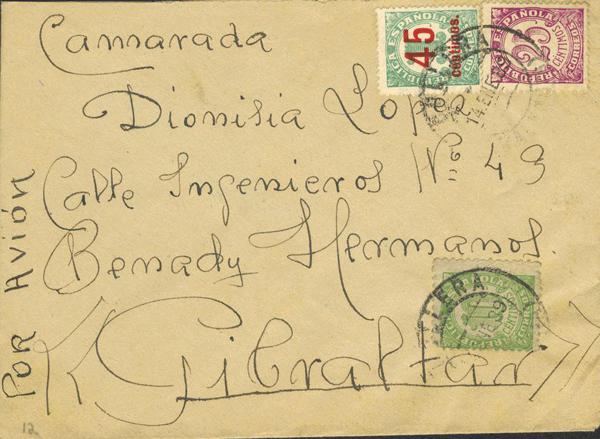 Camarada
Dionisia Lopez
Calle Ingenieros Nº 49
Benady Hermanos.
(Gibraltar)
POR AVIÓN
REPUBLICA ESPAÑOLA
45
centimos.
REPUBLICA ESPAÑOLA
CORREOS
CENTIMOS
14 ENE
LLERA
39
12